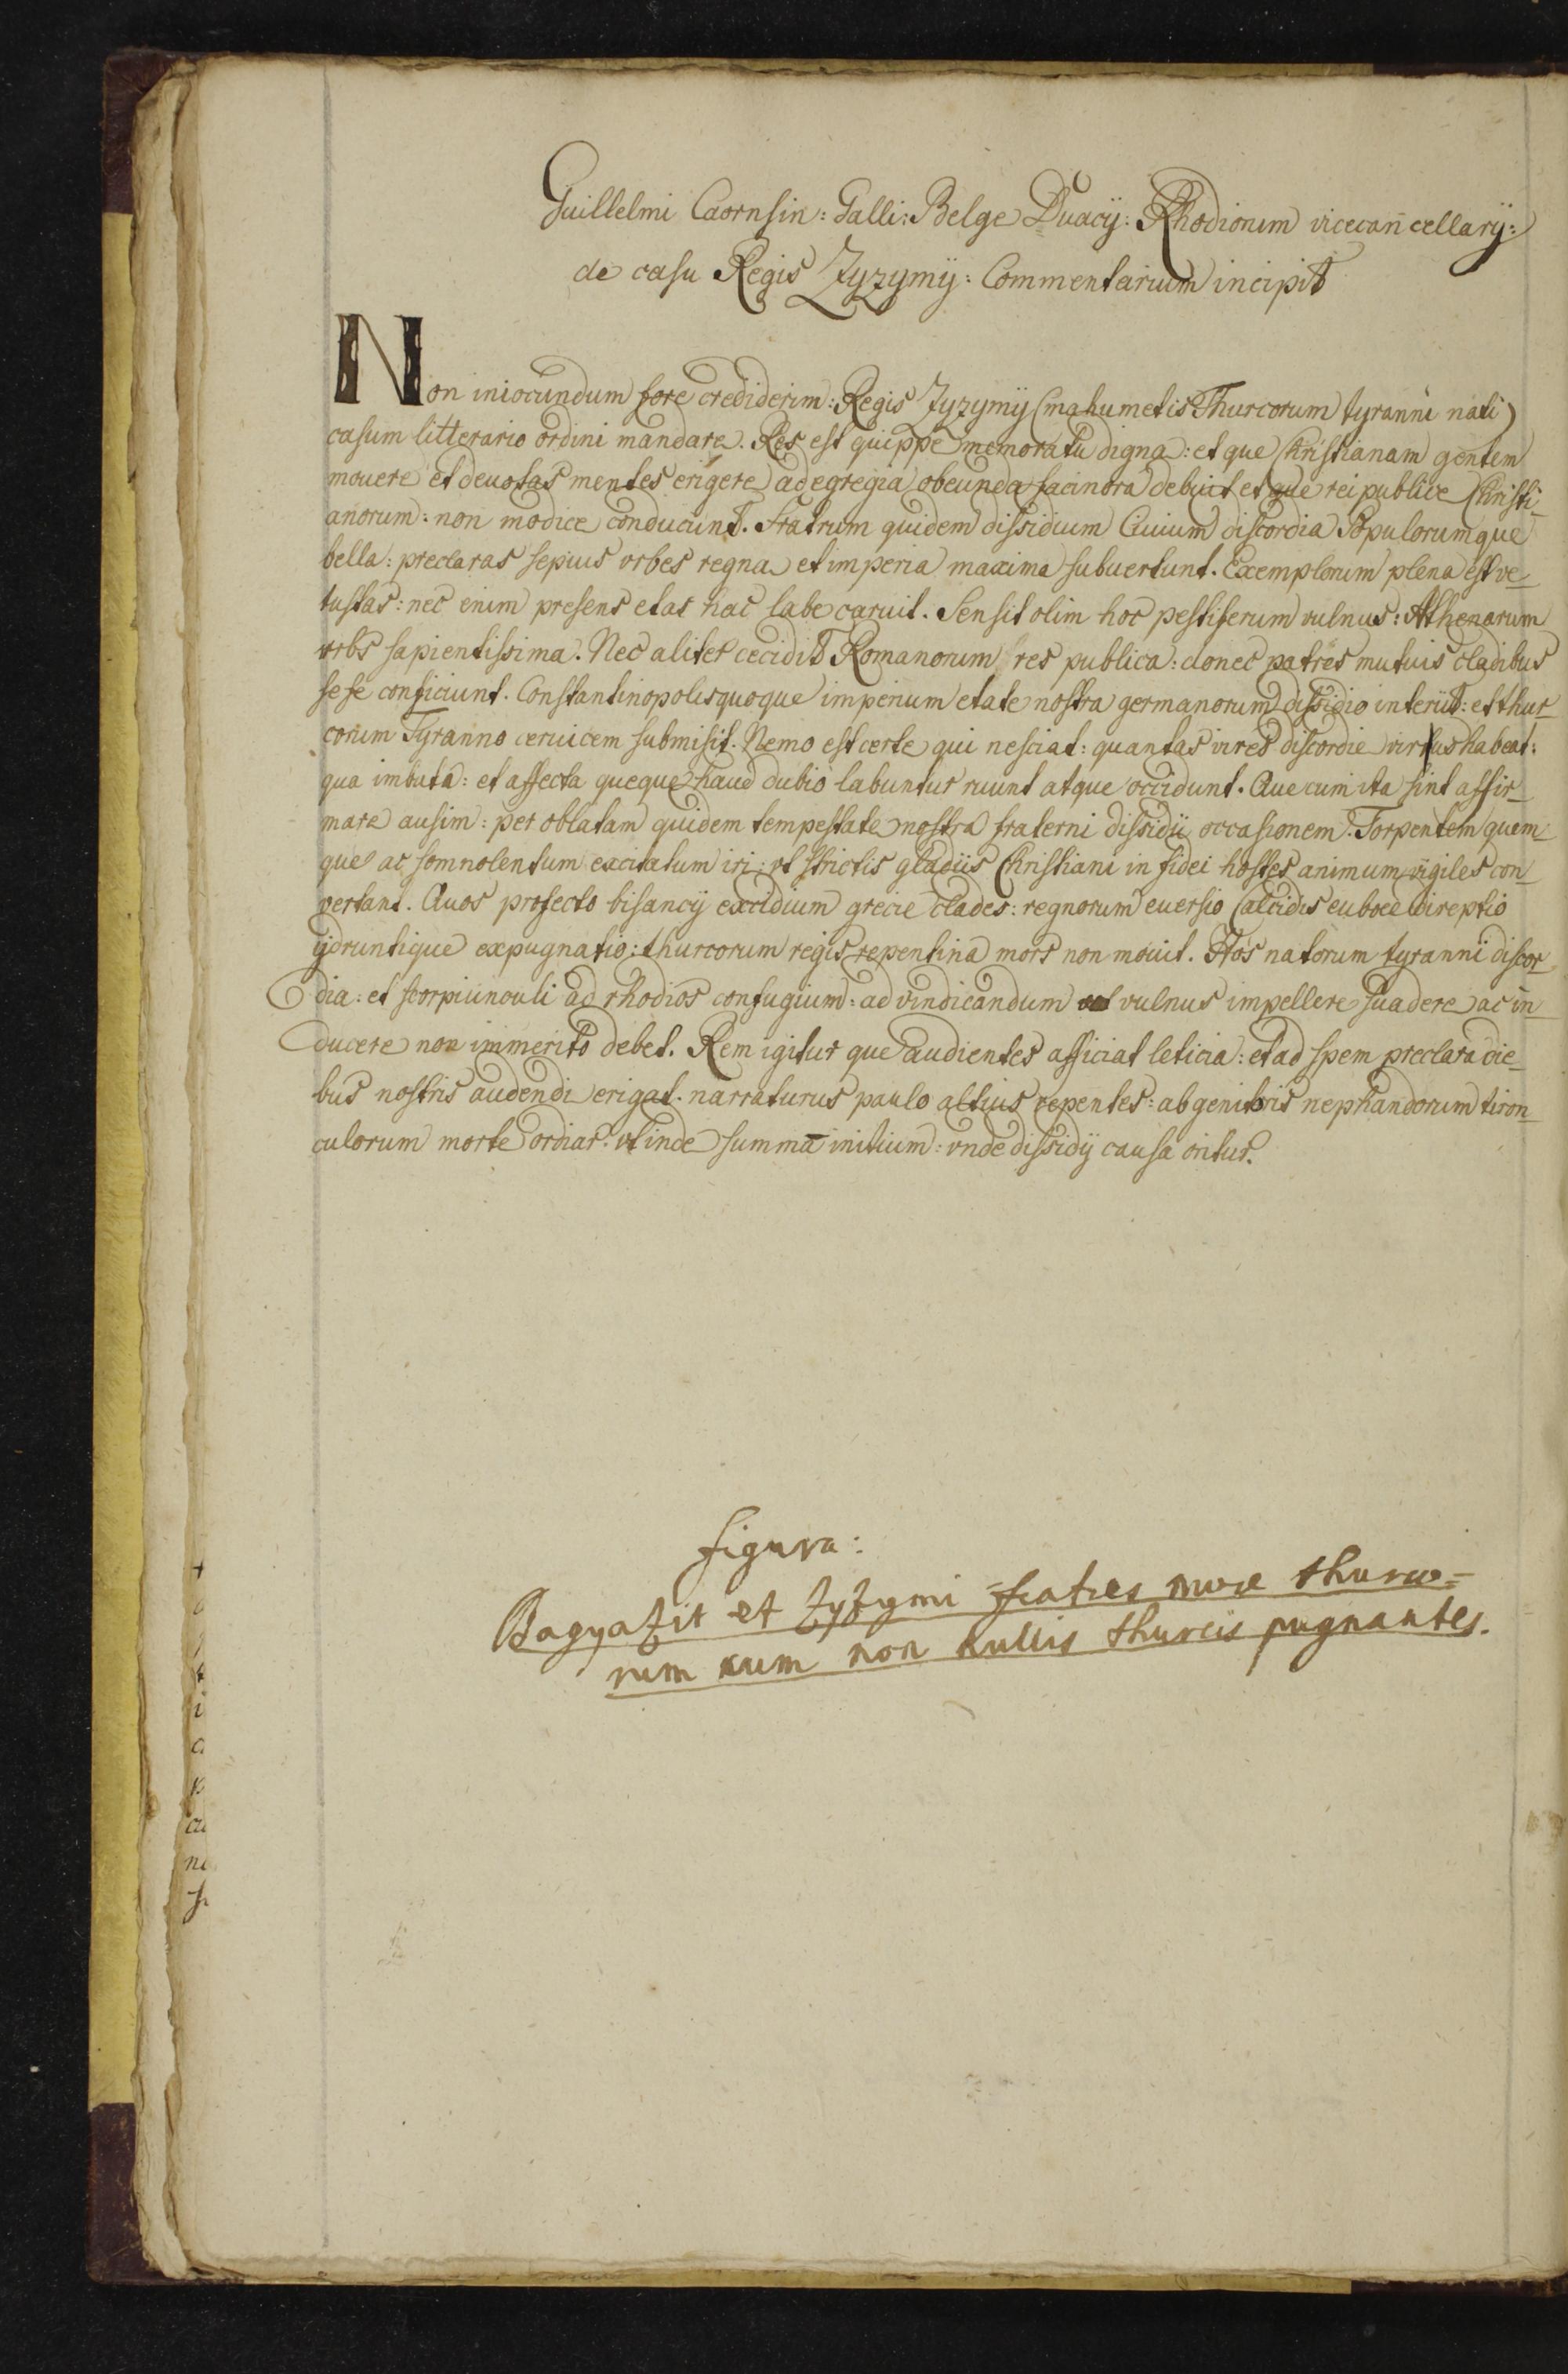 Guillelmi Caornsin: Galli: Belge Duacij: Rhodiorum vicecan̄cellarij:
de casu Regis Zyzymij: Commentarium incipit
Non iniocundum fore crediderim: Regis Zyzymij (mahumetis Thurcorum tyranni nati)
casum litterario ordini mandare. Res est quippe memoratu digna: et que Christianam gentem
mouere et deuotas mentes erigere ad egregia obeunda facinora debuit et que rei publice Christi-
anorum: non modice conducunt. Fratrum quidem dissidium Ciuium discordia Populorumque
bella: preclaras sepius vrbes regna et imperia maxima subuertunt. Exemplorum plena est ve-
tustas: nec enim presens etas hac labe caruit. Sensit olim hoc pestiferum vulnus: Athenarum
vrbs sapientissima. Nec aliter cecidit Romanorum res publica: donec patres mutuis cladibus
sese conficiunt. Constantinopolisquoque imperium etate nostra germanorum dissidio interiit: et thur-
corum Tyranno ceruicem submisit. Nemo est certe qui nesciat: quantas vires discordie virus habeat:
qua imbuta: et affecta queque haud dubio labuntur ruunt atque occidunt. Que cum ita sint affir-
mare ausim: per oblatam quidem tempestate nostra fraterni dissidii occasionem. Torpentem quem-
que ac somnolentum excitatum iri: vt strictis gladiis Christiani in fidei hostes animum vigiles con-
vertant. Quos profecto bisancij excidium grecie clades: regnorum euersio Calcidis euboee direptio
ijdruntique expugnatio: thurcorum regis repentina mors non mouit. Hos natorum tyranni discor-
dia: et scorpiunculi ad rhodios confugium: ad vindicandum vulnus impellere suadere ac in-
ducere non immerito debet. Rem igitur que audientes afficiat leticia: et ad spem preclara die-
bus nostris audendi erigat. narraturus paulo altius repentes: ab genitoris nephandorum tiron-
culorum morte ordiar. vt inde summā initium: vnde dissidij causa oritur.
figura:
Bagyazit et Zyzymi fratres more thurco=
rum cum non nullis thurcis pugnantes.